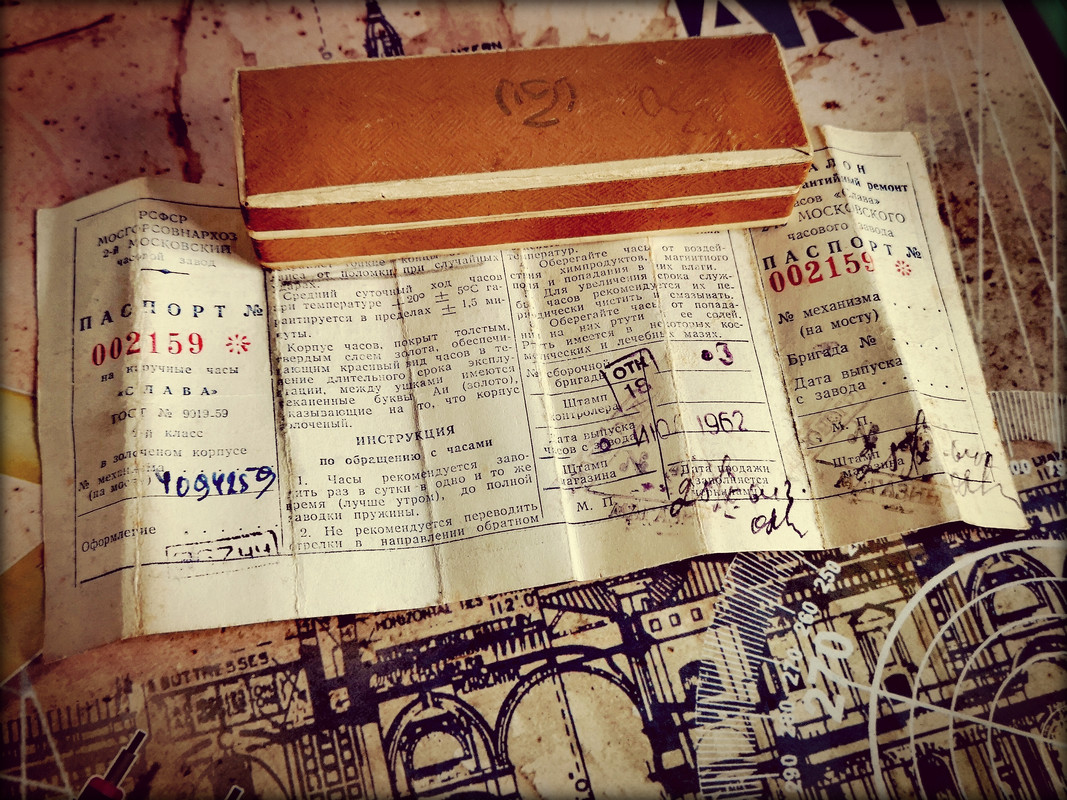 РСФСР
МОСГОРСОВНАРХОЗ
2-й МОСКОВСКИЙ
часовой завод
ПАСПОРТ №
002159
на наручные часы
«СЛАВА»
ГОСТ № 9019-59
2-й класс
в золоченом корпусе
№ механизма
(на мосту)
4094259
Оформление
при случайных
Средний суточный ход часов
при температуре +20° ± 5°С га-
рантируется в пределах ± 1,5 ми-
нуты.
Корпус часов, покрыт толстым,
твердым слоем золота, обеспечи-
вающим красивый вид часов в те-
чение длительного срока эксплу-
атации, между ушками имеются
чеканенные буквы Аи (золото),
указывающие на то, что корпус
золоченый.
ИНСТРУКЦИЯ
по обращению с часами
1. Часы рекомендуется заво-
дить раз в сутки в одно и то же
время (лучше утром), до полной
заводки пружины.
2. Не рекомендуется переводить
стрелки в направлении обратном
температур.
Оберегайте часы от воздей-
ствия химпродуктов, магнитного
поля и попадания в них влаги.
Для увеличения срока служ-
бы часов рекомендуется их пе-
риодически чистить и смазывать.
Оберегайте часы от попада-
ния на них ртути и ее солей.
Ртуть имеется в некоторых кос-
метических и лечебных мазях.
№ сборочной
бригады
3
ОТК
18
Штамп
контролера
Дата выпуска
часов с завода
1962
Штамп
магазина
Дата продажи
заполняется
чернилами
М. П.
ТАЛОН
гарантийный ремонт
часов «Слава»
2-го МОСКОВСКОГО
часового завода
ПАСПОРТ №
002159
№ механизма
(на мосту)
Бригада №
Дата выпуска
с завода
М. П.
Штамп
магазина
BUTTRESSES
HORIZONTAL
112'.0"
250
260
270
270
280
290